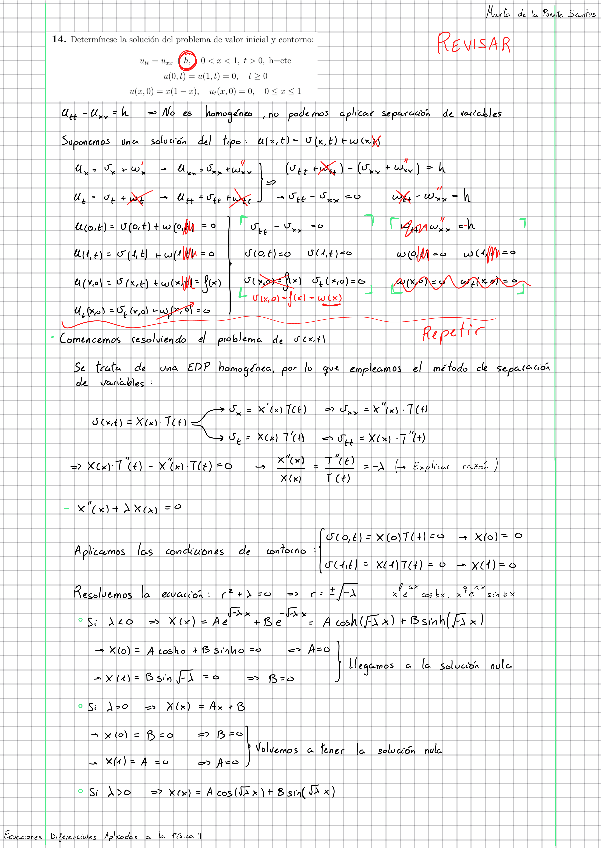 Marta de la Puente Santos
14. Determínese la solución del problema de valor inicial y contorno:
u_tt − u_xx = h, 0 < x < 1, t > 0, h=cte
u(0, t) = u(1, t) = 0, t ≥ 0
u(x, 0) = x(1 − x), u_t(x, 0) = 0, 0 ≤ x ≤ 1
REVISAR
u_tt - u_xx = h → No es homogénea, no podemos aplicar separación de variables
Suponemos una solución del tipo: u(x,t) = v(x,t) + w(x)
u_x = v_x + w_x' → u_xx = v_xx + w_xx'' ⇒ (v_tt + w_tt) - (v_xx + w_xx'') = h
u_t = v_t + w_t → u_tt = v_tt + w_tt → v_tt - v_xx = 0 w_tt - w_xx'' = h
u(0,t) = v(0,t) + w(0) = 0 v_tt - v_xx = 0 w_xx'' = h
u(1,t) = v(1,t) + w(1) = 0 v(0,t) = 0 v(1,t) = 0 w(0) = 0 w(1) = 0
u(x,0) = v(x,t) + w(x) = f(x) v(x,0) = f(x) v_t(x,0) = 0 w(x,0) = 0 w_t(x,0) = 0
v(x,0) = f(x) - w(x)
u_t(x,0) = v_t(x,0) + w_t(x,0) = 0
Repetir
- Comencemos resolviendo el problema de v(x,t)
Se trata de una EDP homogénea, por lo que empleamos el método de separación
de variables:
v(x,t) = X(x)·T(t) → v_x = X'(x)T(t) ⇒ v_xx = X''(x)·T(t)
→ v_t = X(x)T'(t) ⇒ v_tt = X(x)·T''(t)
⇒ X(x)·T''(t) - X''(x)·T(t) = 0 → X''(x)/X(x) = T''(t)/T(t) = -λ (→ Explicar razón)
- X''(x) + λX(x) = 0
Aplicamos las condiciones de contorno: v(0,t) = X(0)T(t) = 0 → X(0) = 0
v(1,t) = X(1)T(t) = 0 → X(1) = 0
Resolvemos la ecuación: r² + λ = 0 ⇒ r = ±√-λ
∘ Si λ<0 ⇒ X(x) = Ae^{√-λ x} + Be^{-√-λ x} = A cosh(√-λ x) + B sinh(√-λ x)
→ X(0) = A cosh 0 + B sinh 0 = 0 ⇒ A=0
→ X(1) = B sin √-λ = 0 ⇒ B=0
Llegamos a la solución nula
∘ Si λ=0 ⇒ X(x) = Ax + B
→ X(0) = B = 0 ⇒ B=0
Volvemos a tener la solución nula
→ X(1) = A = 0 ⇒ A=0
∘ Si λ>0 ⇒ X(x) = A cos(√λ x) + B sin(√λ x)
Ecuaciones Diferenciales Aplicadas a la Física